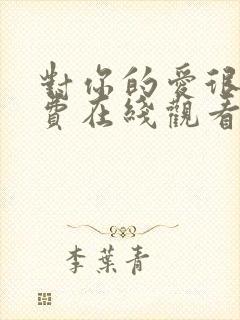 對你的愛很
費在綫觀看
李葉青